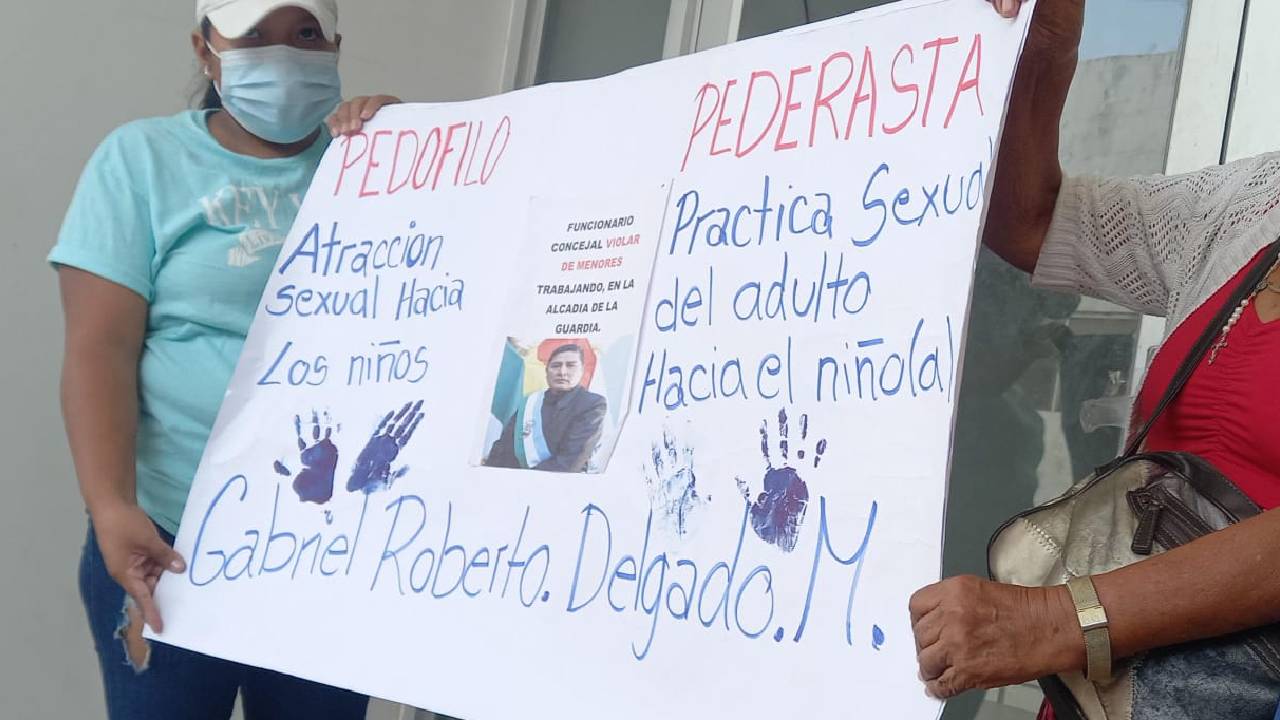 PEDOFILO
Atraccion
sexual Hacia
Los niños
FUNCIONARIO
CONCEJAL VIOLAR
DE MENORES
TRABAJANDO, EN LA
ALCADIA DE LA
GUARDIA.
PEDERASTA
Practica Sexual
del adulto
Hacia el niño(a)
Gabriel Roberto. Delgado. M.